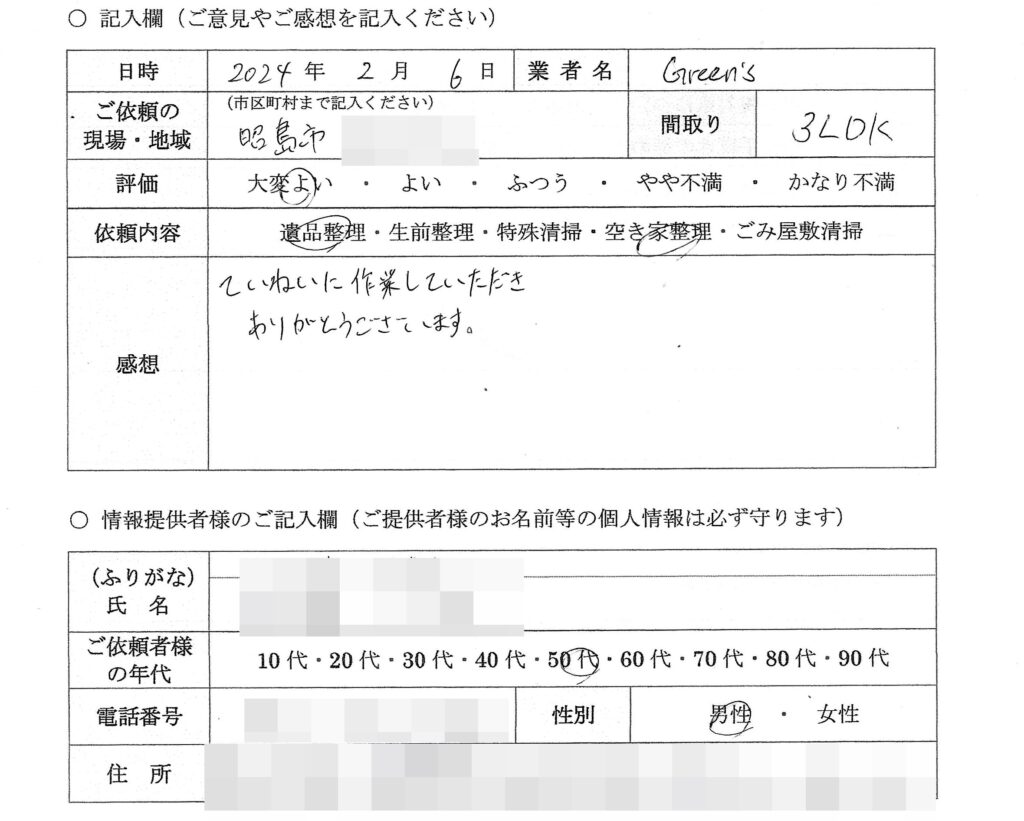 ○ 記入欄（ご意見やご感想を記入ください）
日時 2024 年 2 月 6 日 業者名 Green's
ご依頼の現場・地域 （市区町村まで記入ください） 昭島市 間取り 3LDK
評価 大変よい ・ よい ・ ふつう ・ やや不満 ・ かなり不満
依頼内容 遺品整理・生前整理・特殊清掃・空き家整理・ごみ屋敷清掃
感想
ていねいに作業していただき
ありがとうございます。
○ 情報提供者様のご記入欄（ご提供者様のお名前等の個人情報は必ず守ります）
（ふりがな）
氏 名
ご依頼者様の年代 10 代・20 代・30 代・40 代・50 代・60 代・70 代・80 代・90 代
電話番号 性別 男性 ・ 女性
住 所